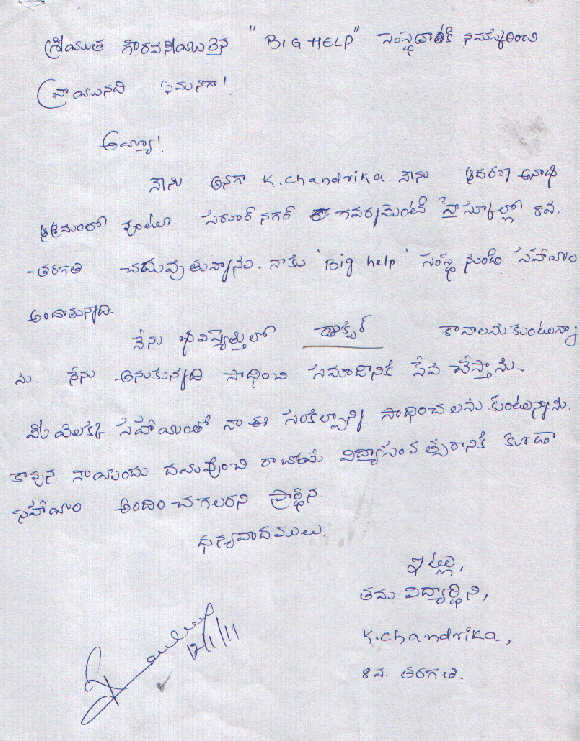 శ్రీయుత గౌరవనీయులైన "BIG HELP" సంస్థవారికి నమస్కరించి
వ్రాయునది ఏమనగా!
అయ్యా!
నేను అనగా K.chandrika నేను ఆదరణ అనాధ
ఆశ్రమంలో వుంటూ సరూర్ నగర్ ఈ గవర్నమెంట్ హైస్కూల్లో 8వ
తరగతి చదువుతున్నాను. నాకు 'Big help' సంస్థ నుండి సహాయం
అందుతున్నది.
నేను భవిష్యత్తులో డాక్టర్ కావాలనుకుంటున్నా
ను నేను అనుకున్నది సాధించి సమాజానికి సేవ చేస్తాను.
మీ వెలకట్టి సహాయంతో నా ఈ సంకల్పాన్ని సాధించాలనుకుంటున్నాను.
కావున నాయందు దయవుంచి రాబోయే విద్యాసంవత్సరానికి కూడా
సహాయం అందించగలరని ప్రార్థన
ధన్యవాదములు.
ఇట్లు,
తమ విద్యార్థిని,
K.chandrika,
8వ తరగతి.
12/1/11